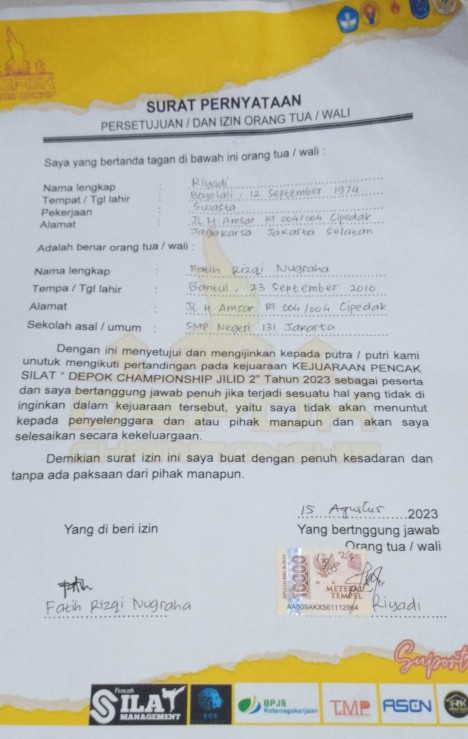 SURAT PERNYATAAN
PERSETUJUAN / DAN IZIN ORANG TUA / WALI
Saya yang bertanda tagan di bawah ini orang tua / wali :
Nama lengkap : Riyadi
Tempat / Tgl lahir : Boyolali, 12 September 1974
Pekerjaan : Swasta
Alamat : Jl H Amsar RT 004/004 Cipedak
Jagakarsa Jakarta Selatan
Adalah benar orang tua / wali :
Nama lengkap : Fatih Rizqi Nugraha
Tempa / Tgl lahir : Bantul, 23 September 2010
Alamat : Jl H Amsar RT 004/004 Cipedak
Sekolah asal / umum : SMP Negeri 131 Jakarta
Dengan ini menyetujui dan mengijinkan kepada putra / putri kami
unutuk mengikuti pertandingan pada kejuaraan KEJUARAAN PENCAK
SILAT “ DEPOK CHAMPIONSHIP JILID 2” Tahun 2023 sebagai peserta
dan saya bertanggung jawab penuh jika terjadi sesuatu hal yang tidak di
inginkan dalam kejuaraan tersebut, yaitu saya tidak akan menuntut
kepada penyelenggara dan atau pihak manapun dan akan saya
selesaikan secara kekeluargaan.
Demikian surat izin ini saya buat dengan penuh kesadaran dan
tanpa ada paksaan dari pihak manapun.
15 Agustus 2023
Yang di beri izin
Yang bertnggung jawab
Orang tua / wali
10000
METERAI
TEMPEL
Fatih Rizqi Nugraha
Riyadi
Suport
Pencak
SILAT
MANAGEMENT
BPJS
Ketenagakerjaan
TMP
ASCN